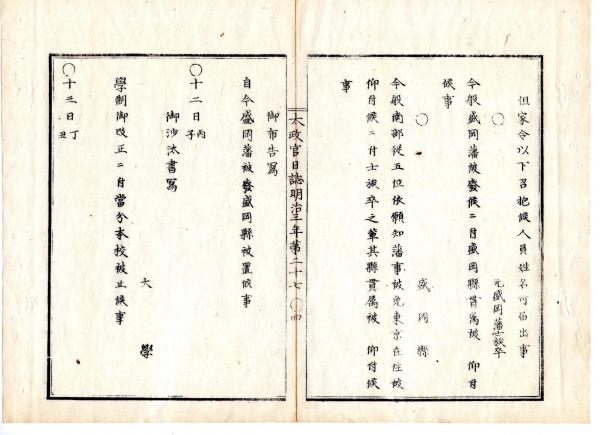 但家令以下召抱候人員姓名可届出事
元盛岡藩士族卒
今般盛岡藩被廢候ニ付盛岡縣貫属被 仰付
候事
〇 盛岡縣
今般南部従五位依願知藩事被免東京在住被
仰付候ニ付士族卒之輩其縣貫属被 仰付候
事
太政官日誌明治三年第二十七 〇四
御布告寫
自今盛岡藩被廢盛岡縣被置候事
〇十二日丙子
御沙汰書寫
大學
學制御改正ニ付當分本校被止候事
〇十三日丁丑